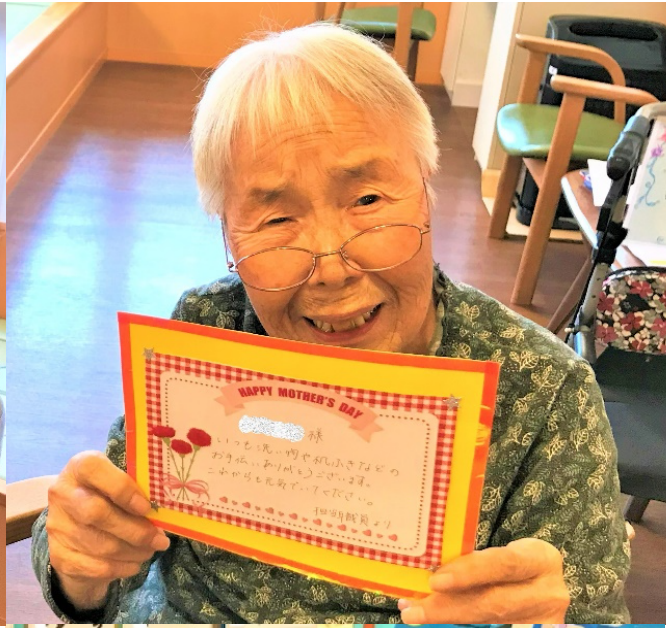 HAPPY MOTHER'S DAY
様
いつも洗い物や机ふきなどの
お手伝いありがとうございます。
これからも元気でいてください。
担当職員より